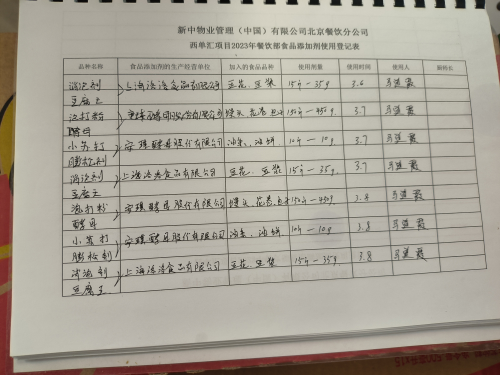 新中物业管理（中国）有限公司北京餐饮分公司
西单汇项目2023年餐饮部食品添加剂使用登记表
品种名称 食品添加剂的生产经营单位 加入的食品品种 使用剂量 使用时间 使用人
消泡剂 豆花、豆浆 15斤－35g 3.6 马道霞
豆腐王
泡打粉 馒头 花卷 150斤－450g 3.7 马道霞
酵母
小苏打 安琪酵母股份有限公司 油条、油饼 10斤－10g 3.7 马道霞
膨松剂
消泡剂 上海法洛食品有限公司 豆花、豆浆 15斤－35g 3.7 马道霞
豆腐王
泡打粉 安琪酵母股份有限公司 馒头 花卷 150斤－450g 3.8 马道霞
酵母
小苏打 安琪酵母股份有限公司 油条、油饼 10斤－10g 3.8 马道霞
膨松剂
消泡剂 上海法洛食品有限公司 豆花、豆浆 15斤－35g 3.8 马道霞
豆腐王